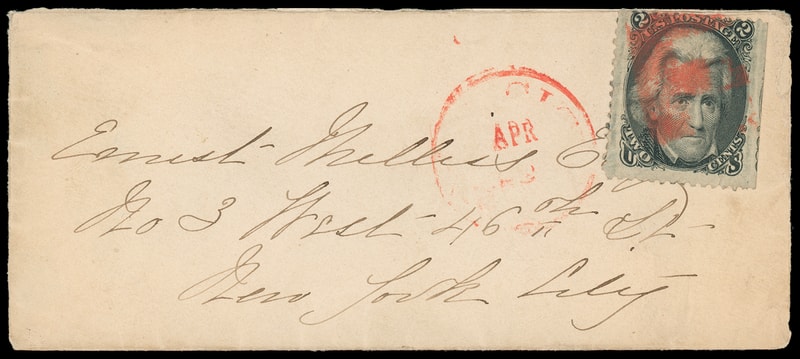 U.S. POSTAGE
2 2
TWO CENTS
APR
Ernest
No 3 West 46th St
New York City